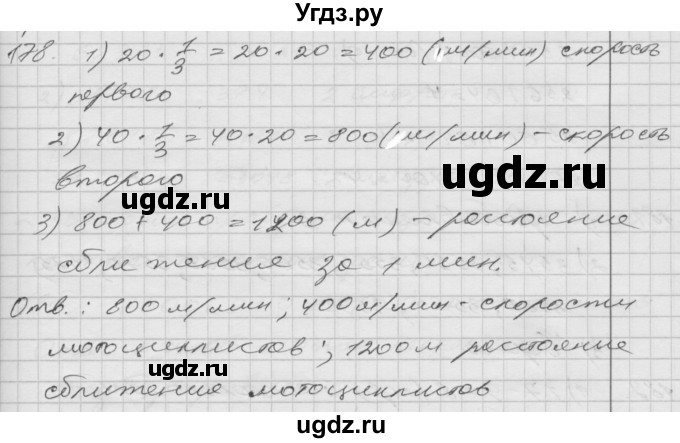 Угдз.ру
178. 1) 20 · 1/3 = 20 · 20 = 400 (м/мин) скорость
первого
2) 40 · 1/3 = 40 · 20 = 800 (м/мин) – скорость
второго
3) 800 + 400 = 1200 (м) – расстояние
сближения за 1 мин.
Отв.: 800 м/мин; 400 м/мин - скорости
мотоциклистов; 1200 м расстояние
сближения мотоциклистов
ugdz.ru ugdz.ru
ugdz.ru
ugdz.ru
ugdz.ru
ugdz.ru